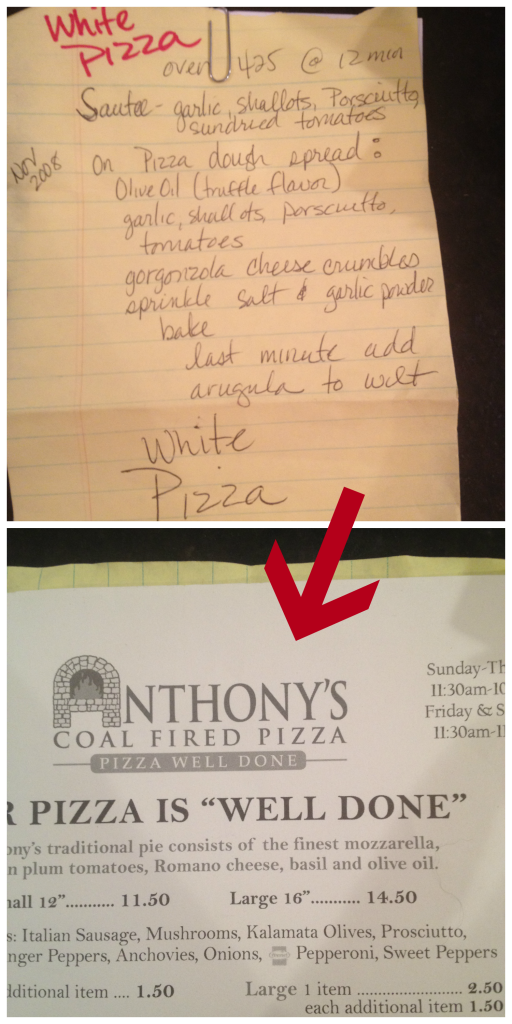 White
Pizza
oven 425 @ 12 min
Sautee - garlic, shallots, Porscuitto,
sundried tomatoes
Nov
2008
On Pizza dough spread :
Olive Oil (truffle flavor)
garlic, shallots, porscuetto,
tomatoes
gorgonzola cheese crumbles
sprinkle salt & garlic powder
bake
last minute add
arugula to wilt
White
Pizza
ANTHONY'S
COAL FIRED PIZZA
PIZZA WELL DONE
Sunday-Th
11:30am-10
Friday & S
11:30am-11
R PIZZA IS “WELL DONE”
ony's traditional pie consists of the finest mozzarella,
n plum tomatoes, Romano cheese, basil and olive oil.
nall 12”........... 11.50 Large 16”........... 14.50
s: Italian Sausage, Mushrooms, Kalamata Olives, Prosciutto,
nger Peppers, Anchovies, Onions, Pepperoni, Sweet Peppers
dditional item .... 1.50 Large 1 item ........................ 2.50
each additional item 1.50